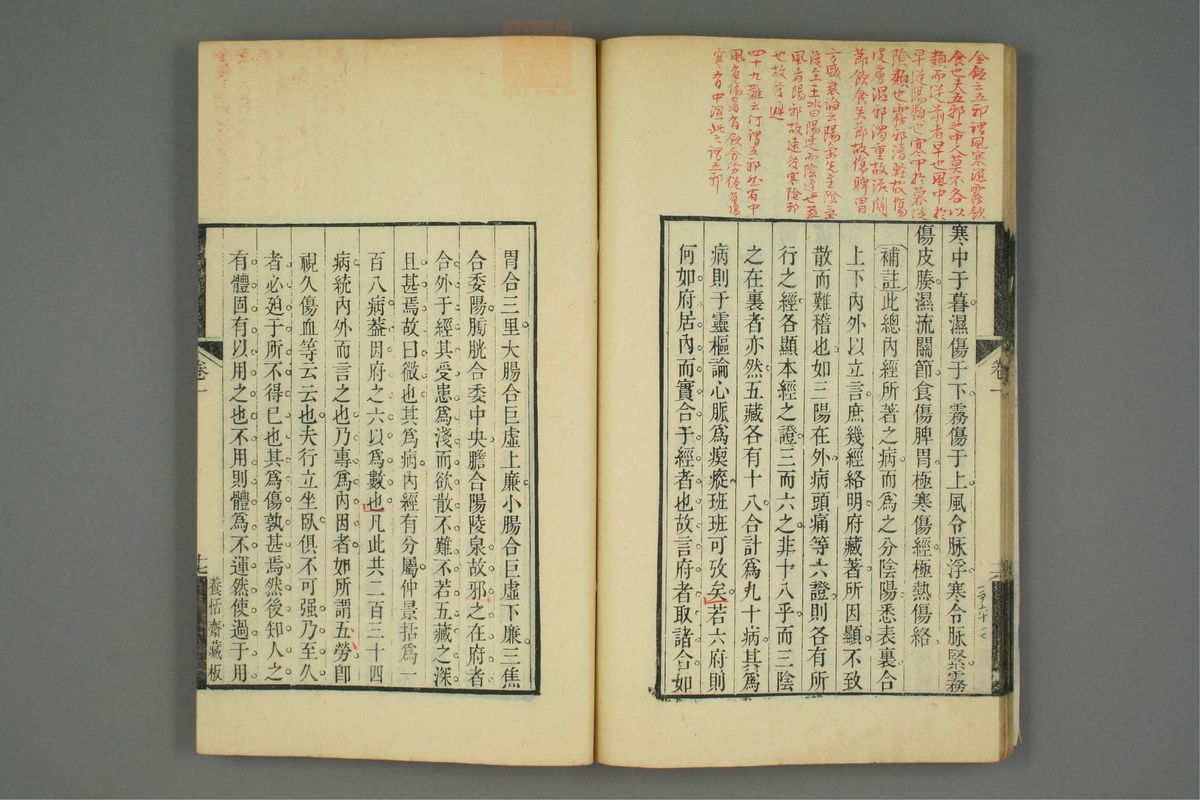 金鑑云五邪謂風寒濕霧飲
食也夫五邪之中人莫不各以
類而從前者早也風中於
早從陽類也寒中於暮從
陰類也霧邪清輕故傷
皮膚濕邪濁重故流關
節飲食失節故傷脾胃
也故曰遲
四十九難云何謂五邪然有中
風有傷暑有飲食勞倦有傷
寒有中濕此之謂五邪
寒中于暮濕傷于下霧傷于上風令脉浮寒令脉緊霧
傷皮腠濕流關節食傷脾胃極寒傷經極熱傷絡
補註此總內經所著之病而爲之分陰陽悉表裏合
上下內外以立言庶幾經絡明府藏著所因顯不致
散而難稽也如三陽在外病頭痛等六證則各有所
行之經各顯本經之證三而六之非十八乎而三陰
之在裏者亦然五藏各有十八合計爲九十病其爲
病則于靈樞論心脈爲瘈瘲班班可攷矣若六府則
何如府居內而實合于經者也故言府者取諸合如
卷一
胃合三里大腸合巨虛上廉小腸合巨虛下廉三焦
合委陽膀胱合委中央膽合陽陵泉故邪之在府者
合外于經其受患爲淺而欲散不難不若五藏之深
且甚焉故曰微也其爲病內經有分屬仲景括爲一
百八病葢因府之六以爲數也凡此共二百三十四
病統內外而言之也乃專爲內因者如所謂五勞卽
視久傷血等云云也夫行立坐臥俱不可强乃至久
者必廹于所不得已也其爲傷孰甚焉然後知人之
有體固有以用之也不用則體爲不運然使過于用
卷一
十七
養恬齋藏板